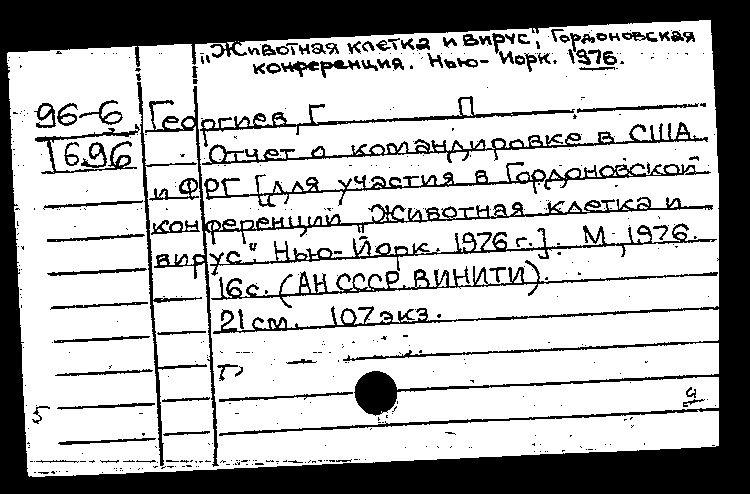 „Животная клетка и вирус", Гордоновская
конференция. Нью-Йорк. 1976.
96-6 Георгиев, Г П
1696 Отчет о командировке в США
и ФРГ [для участия в Гордоновской
конференции „Животная клетка и
вирус". Нью-Йорк. 1976 г.]. М, 1976.
16с. (АН СССР. ВИНИТИ).
21см. 107экз.
5